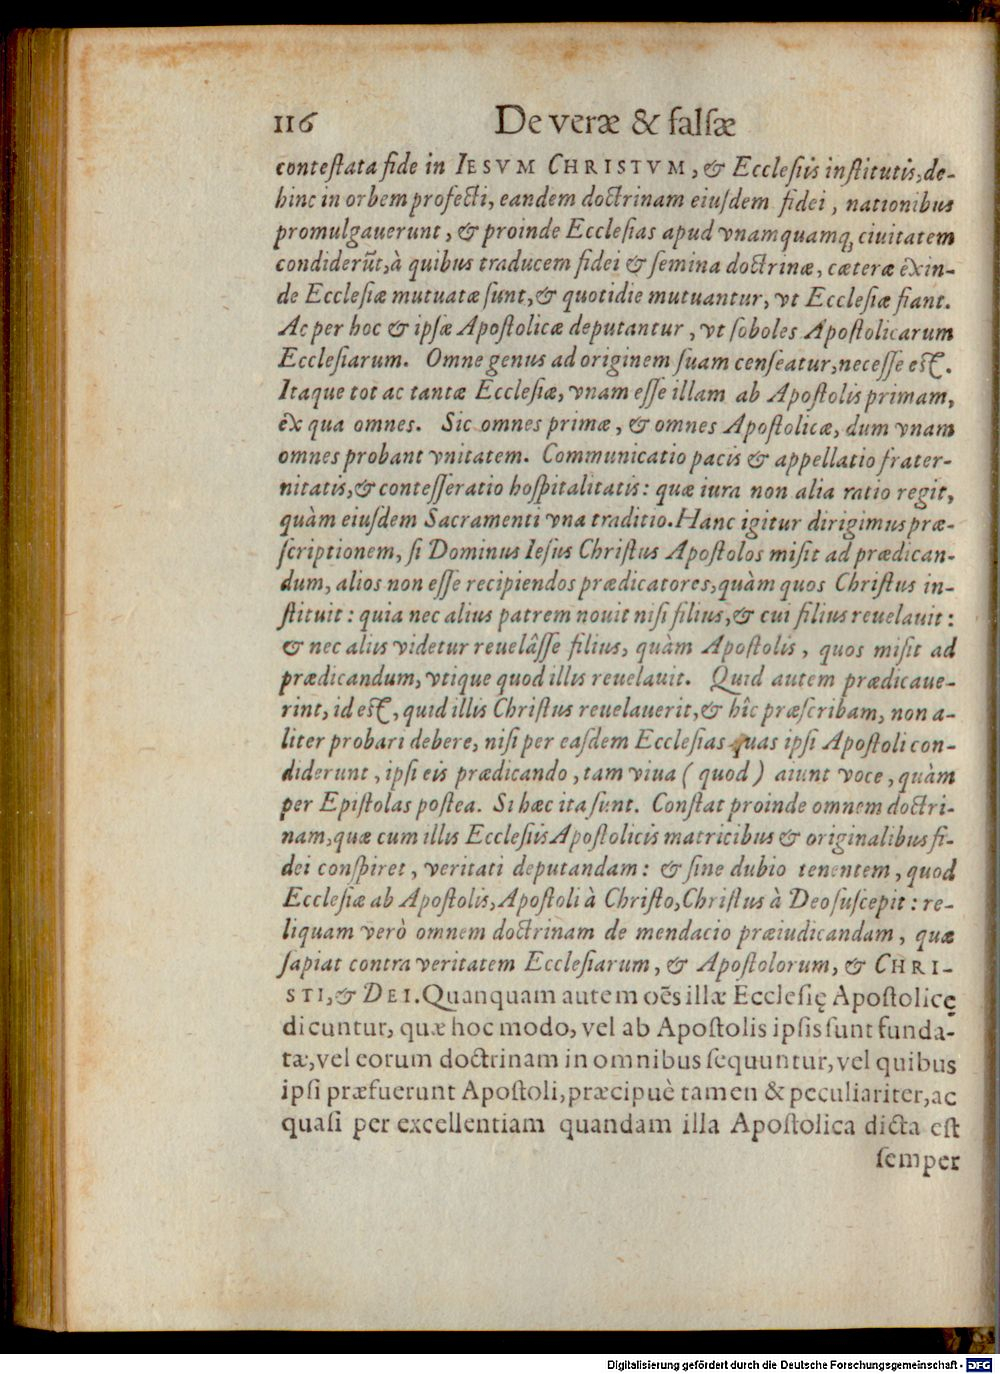 116 De veræ & falſæ
conteſtata fide in IESVM CHRISTVM, & Eccleſiis inſtitutis, de-
hinc in orbem profecti, eandem doctrinam eiuſdem fidei, nationibus
promulgauerunt, & proinde Eccleſias apud vnamquamq; ciuitatem
condiderũt, à quibus traducem fidei & ſemina doctrinæ, cæteræ êxin-
de Eccleſiæ mutuatæ ſunt, & quotidie mutuantur, vt Eccleſiæ fiant.
Ac per hoc & ipſæ Apoſtolicæ deputantur, vt ſoboles Apoſtolicarum
Eccleſiarum. Omne genus ad originem ſuam cenſeatur, neceſſe eſt.
Itaque tot ac tantæ Eccleſiæ, vnam eſſe illam ab Apoſtolis primam,
êx qua omnes. Sic omnes primæ, & omnes Apoſtolicæ, dum vnam
omnes probant vnitatem. Communicatio pacis & appellatio frater-
nitatis, & conteſſeratio hoſpitalitatis: quæ iura non alia ratio regit,
quàm eiuſdem Sacramenti vna traditio. Hanc igitur dirigimus præ-
ſcriptionem, ſi Dominus Ieſus Chriſtus Apoſtolos miſit ad prædican-
dum, alios non eſſe recipiendos prædicatores, quàm quos Chriſtus in-
ſtituit: quia nec alius patrem nouit niſi filius, & cui filius reuelauit:
& nec alius videtur reuelâſſe filius, quàm Apoſtolis, quos miſit ad
prædicandum, vtique quod illis reuelauit. Quid autem prædicaue-
rint, id eſt, quid illis Chriſtus reuelauerit, & hîc præſcribam, non a-
liter probari debere, niſi per eaſdem Eccleſias quas ipſi Apoſtoli con-
diderunt, ipſi eis prædicando, tam viua (quod) aiunt voce, quàm
per Epiſtolas poſtea. Si hæc ita ſunt. Conſtat proinde omnem doctri-
nam, quæ cum illis Eccleſiis Apoſtolicis matricibus & originalibus fi-
dei conſpiret, veritati deputandam: & ſine dubio tenentem, quod
Eccleſiæ ab Apoſtolis, Apoſtoli à Chriſto, Chriſtus à Deo ſuſcepit: re-
liquam verò omnem doctrinam de mendacio præiudicandam, quæ
ſapiat contra veritatem Eccleſiarum, & Apoſtolorum, & CHRI-
STI, & DEI. Quanquam autem oẽs illæ Eccleſię Apoſtolicę
dicuntur, quæ hoc modo, vel ab Apoſtolis ipſis ſunt funda-
tæ, vel eorum doctrinam in omnibus ſequuntur, vel quibus
ipſi præfuerunt Apoſtoli, præcipuè tamen & peculiariter, ac
quaſi per excellentiam quandam illa Apoſtolica dicta eſt
ſemper
Digitalisierung gefördert durch die Deutsche Forschungsgemeinschaft - DFG